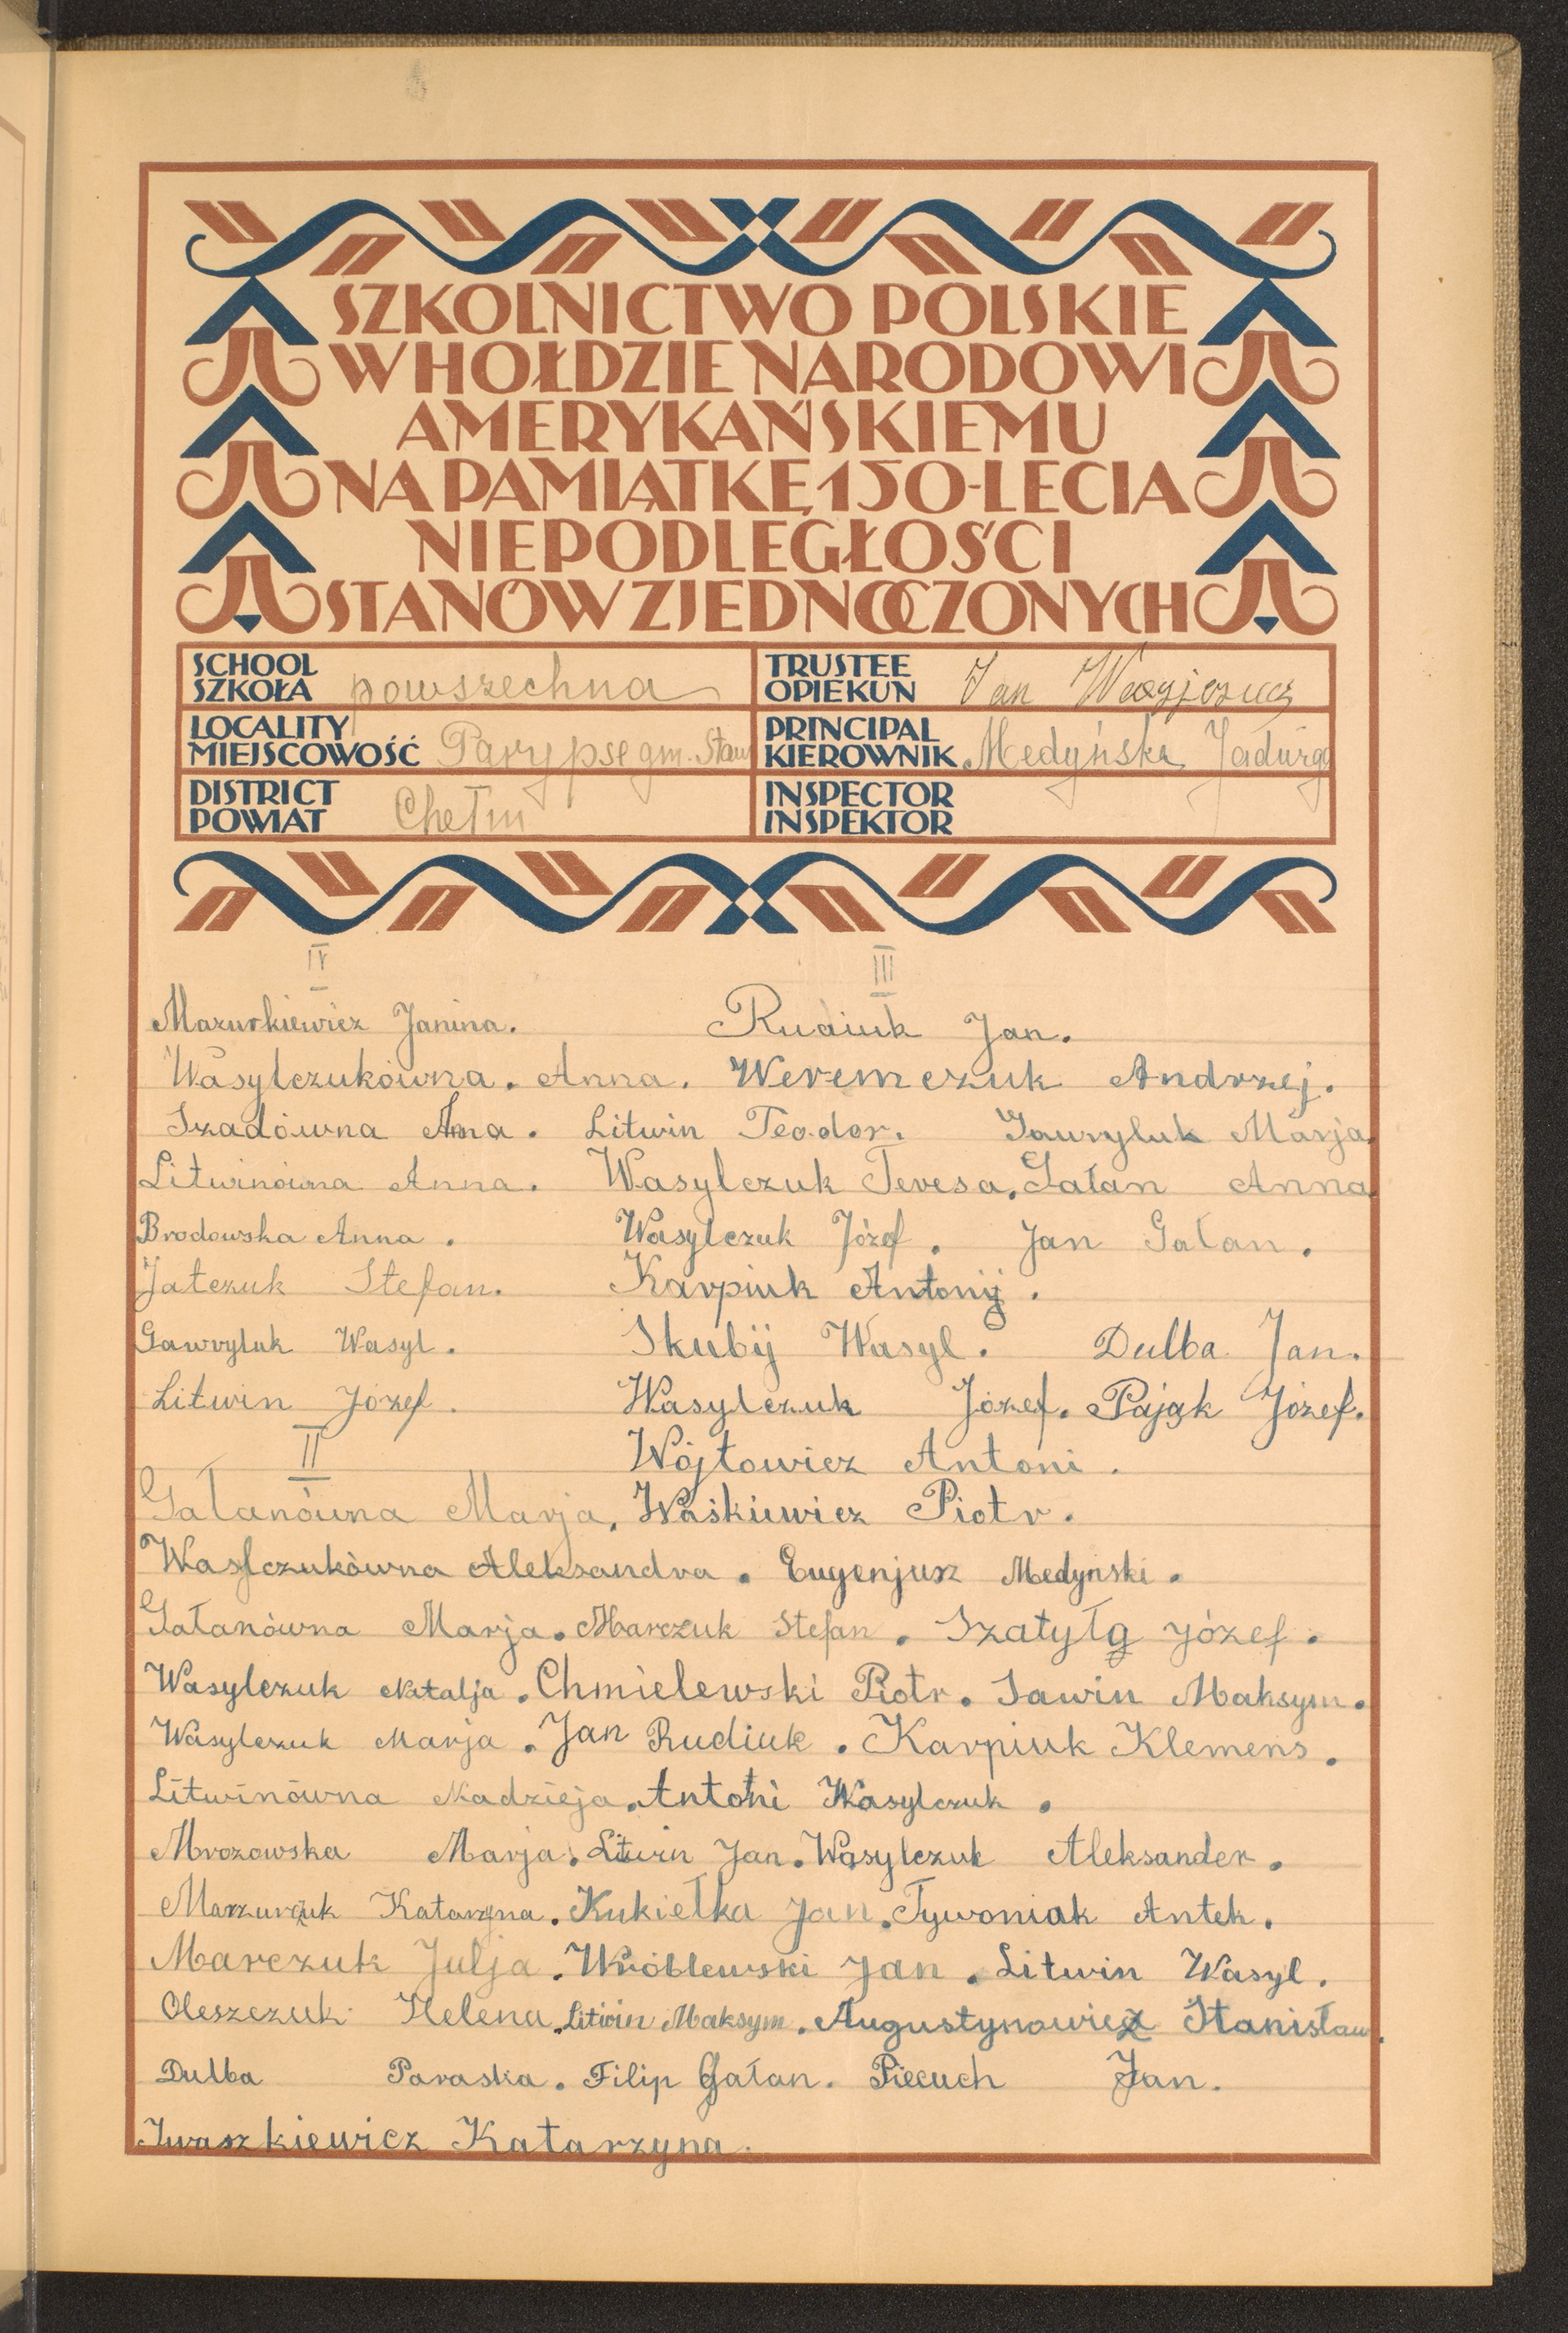 SZKOLNICTWO POLSKIE
W HOŁDZIE NARODOWI
AMERYKAŃSKIEMU
NA PAMIĄTKĘ 150-LECIA
NIEPODLEGŁOŚCI
STANÓW ZJEDNOCZONYCH
SCHOOL
SZKOŁA powszechna
TRUSTEE
OPIEKUN Jan
LOCALITY
MIEJSCOWOŚĆ Parypse gm. Staw
PRINCIPAL
KIEROWNIK Medyńska Jadwiga
DISTRICT
POWIAT Chełm
INSPECTOR
INSPEKTOR
IV III
Mazurkiewicz Janina. Rudiuk Jan.
Wasylczukówna. Anna. Weremczuk Andrzej.
Szadówna Anna. Litwin Teodor. Gawryluk Marja.
Litwinówna Anna. Wasylczuk Teresa. Gałan Anna
Brodowska Anna. Wasylczuk Józef. Jan Gałan.
Jatczuk Stefan. Karpiuk Antonij.
Gawryluk Wasyl. Skubij Wasyl. Dulba Jan.
Litwin Józef. Wasylczuk Józef. Pająk Józef.
II Wójtowicz Antoni.
Gałanówna Marja. Waśkiewicz Piotr.
Waslczukówna Aleksandra. Eugenjusz Medynski.
Gałanówna Marja. Marczuk Stefan. Szatyłg Józef.
Wasylczuk Natalja. Chmielewski Piotr. Sawin Maksym.
Wasylczuk Marja. Jan Rudiuk. Karpiuk Klemens.
Litwinówna Nadzieja. Antoni Wasylczuk.
Mrozowska Marja. Litwin Jan. Wasylczuk Aleksander.
Katarzyna. Kukiełka Jan. Tywoniak Antek.
Marczuk Julja. Wróblewski Jan. Litwin Wasyl.
Oleszczuk Helena. Litwin Maksym. Augustynowicz Stanisław.
Dulba Paraska. Filip Gałan. Piecuch Jan.
Iwaszkiewicz Katarzyna.